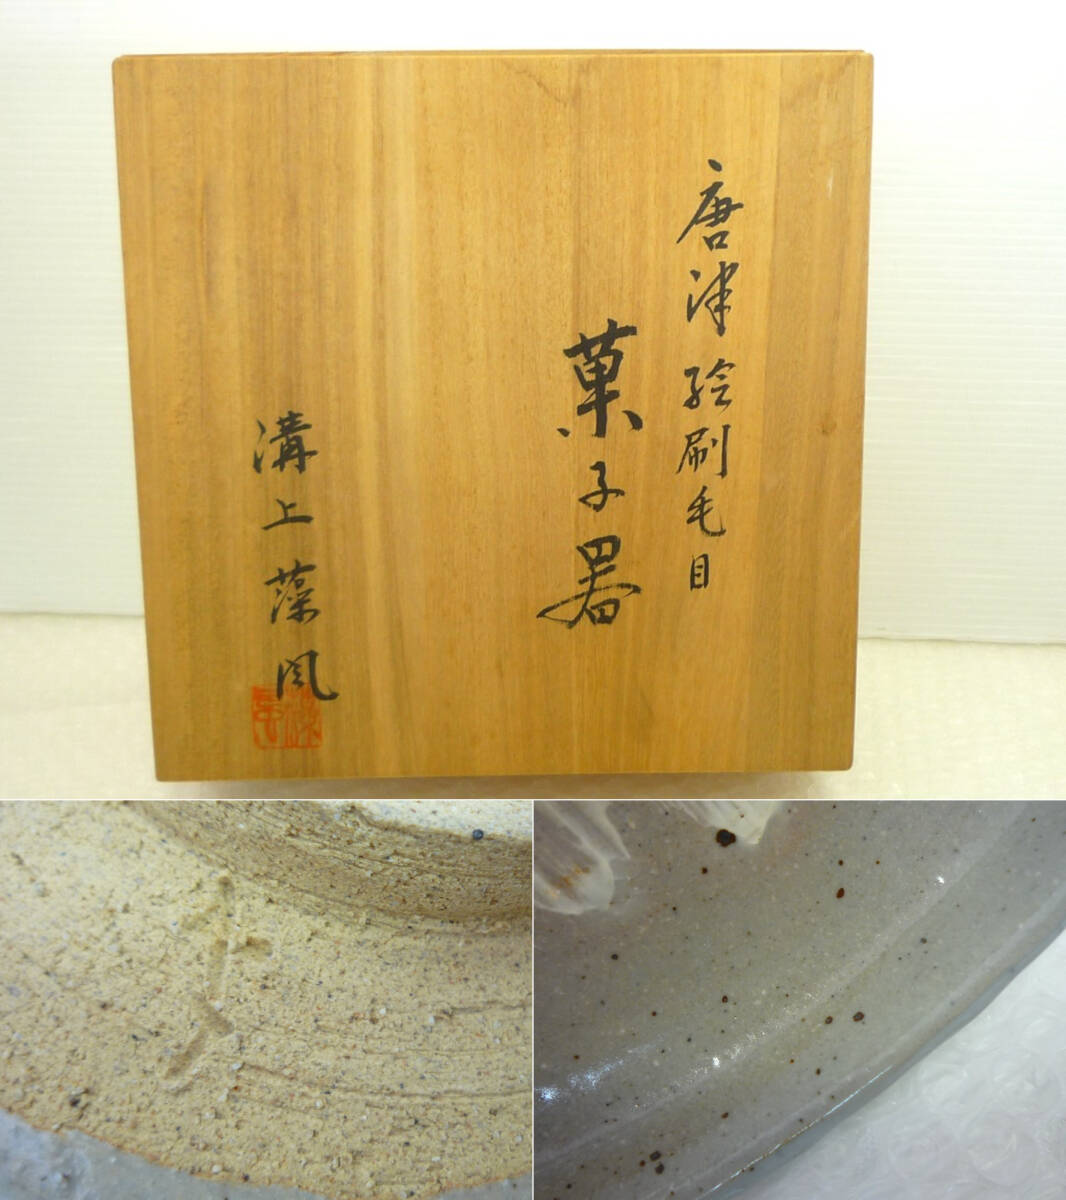 唐津絵刷毛目
菓子器
溝上藻風